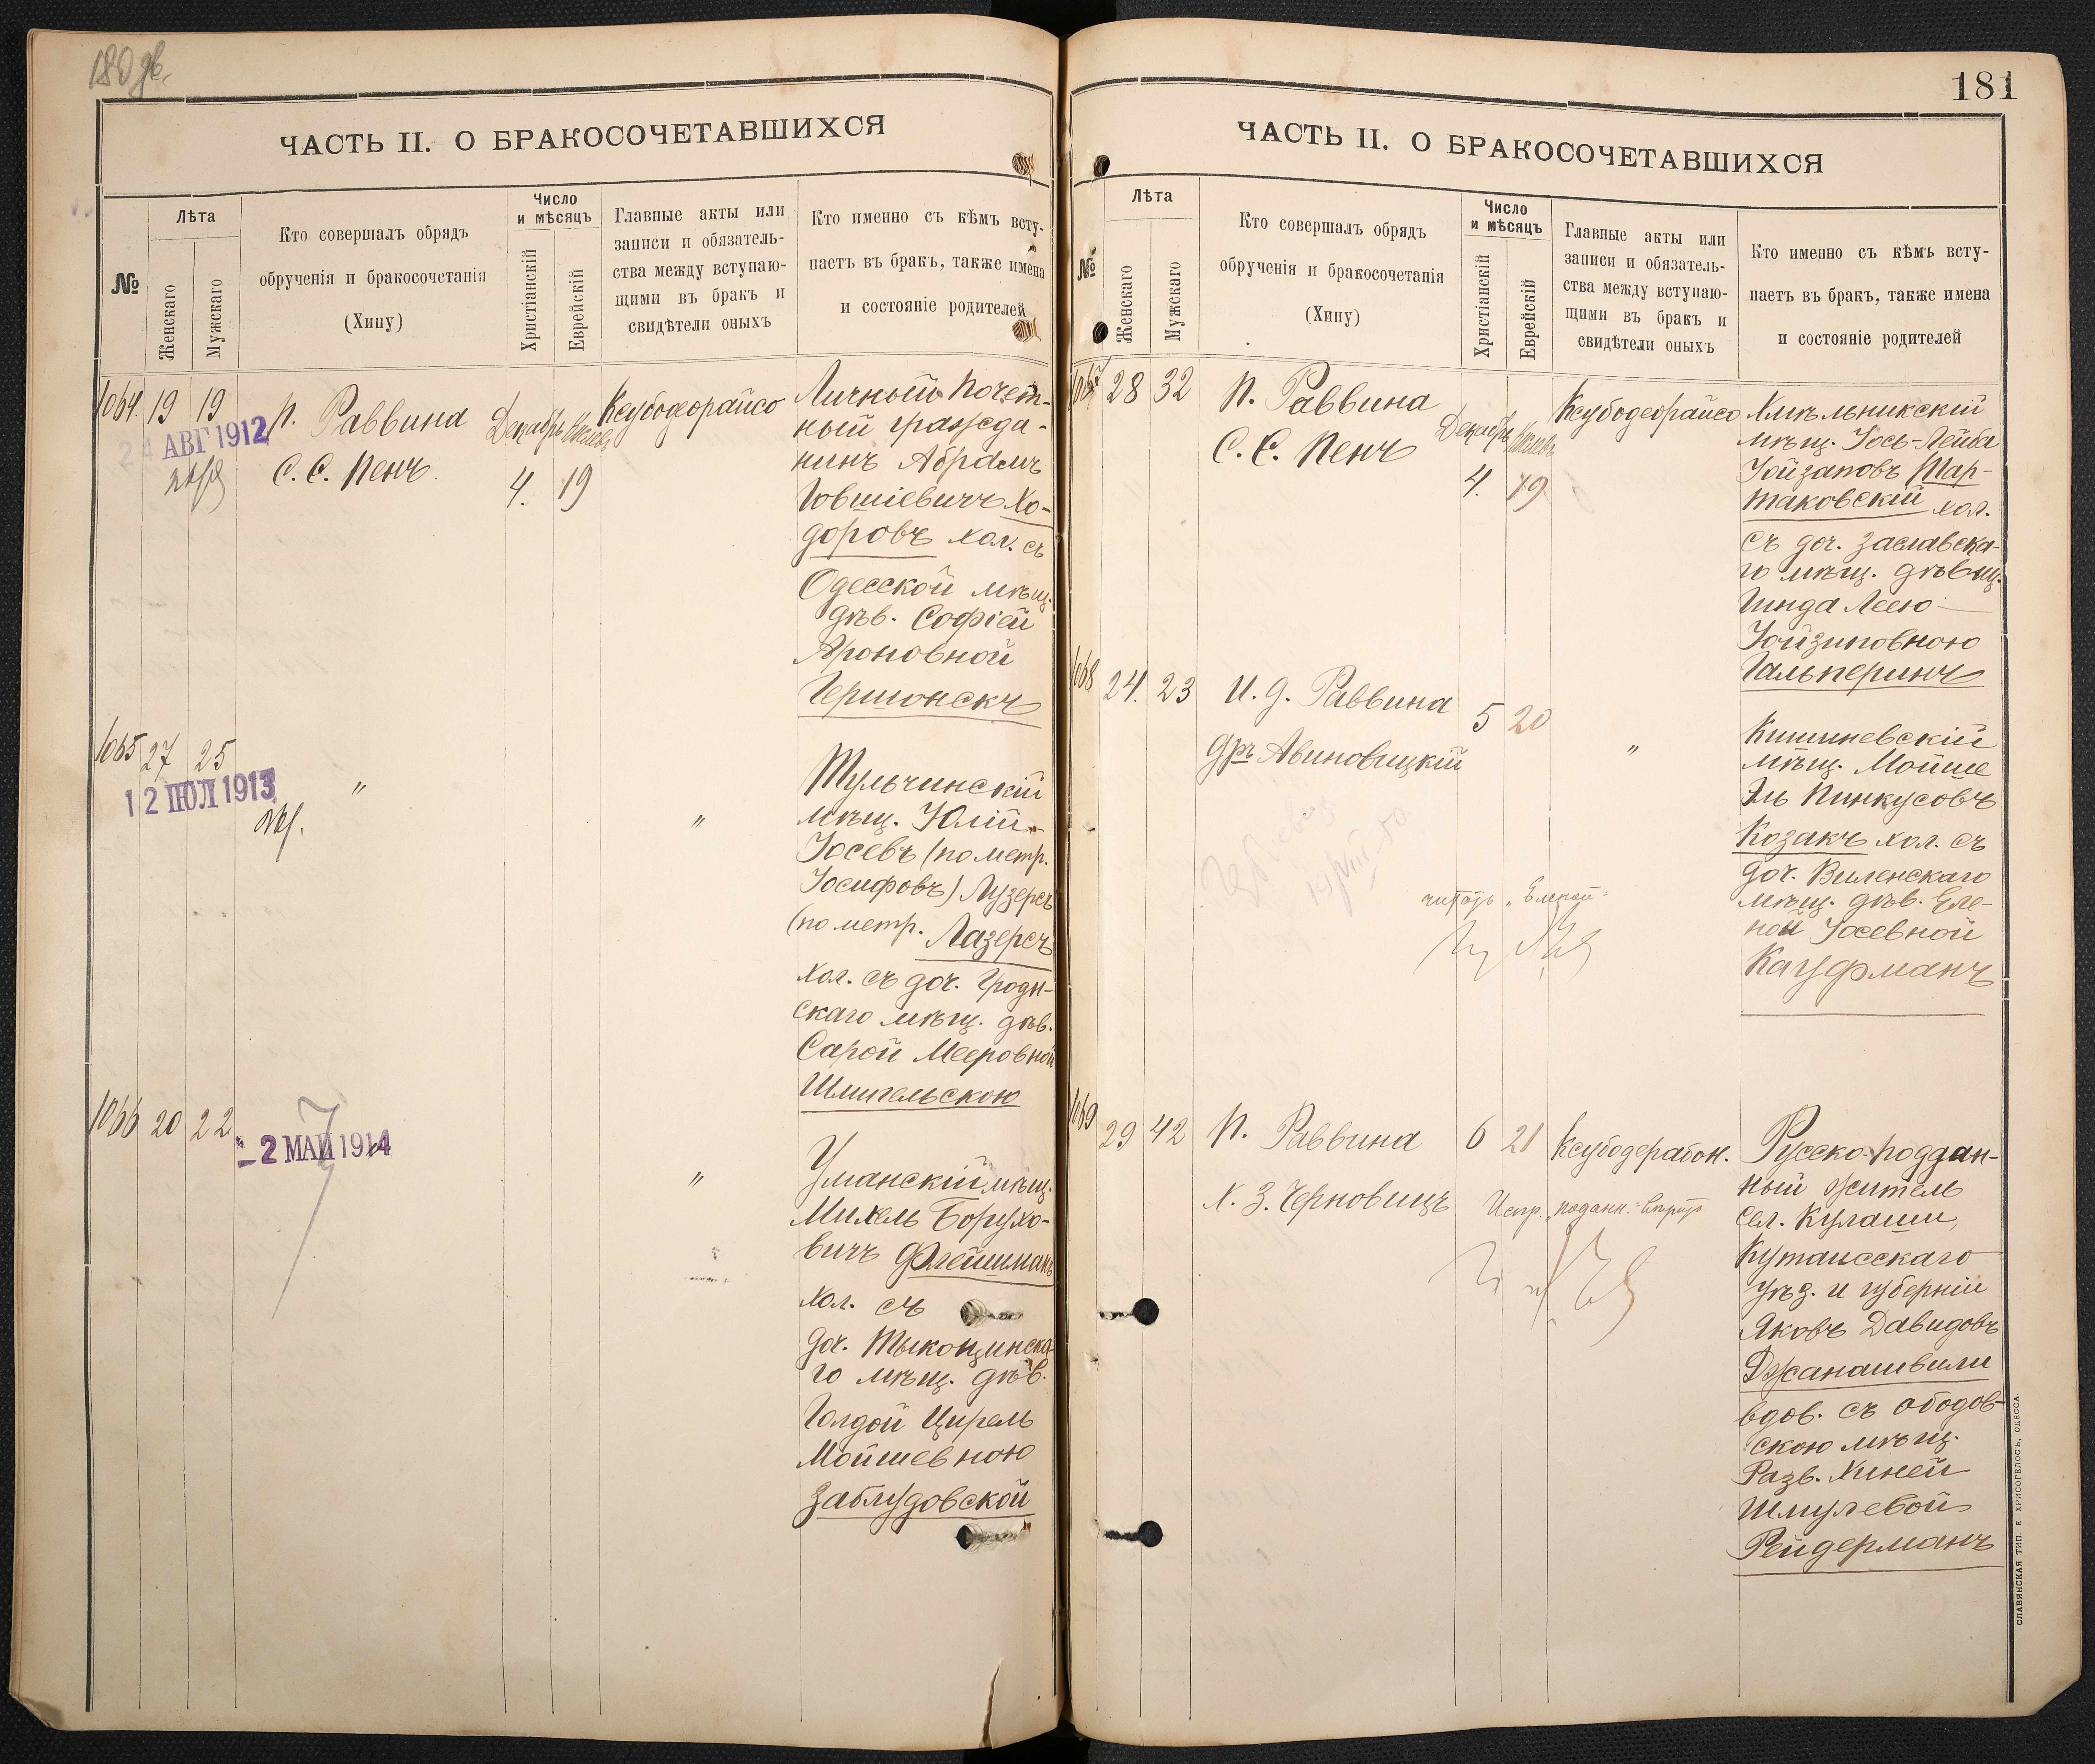 180 об.
ЧАСТЬ II. О БРАКОСОЧЕТАВШИХСЯ
№
Лѣта
Женскаго
Мужскаго
Кто совершалъ обрядъ
обрученія и бракосочетанія
(Хипу)
Число
и мѣсяцъ
Христіанскій
Еврейскій
Главные акты или
записи и обязатель-
ства между вступаю-
щими въ бракъ и
свидѣтели оныхъ
Кто именно съ кѣмъ всту-
паетъ въ бракъ, также имена
и состояніе родителей
1064. 19 19
24 АВГ 1912
П. Раввина
С. С. Пенъ.
Декабрь Кислевъ
4. 19
Ксубодеорайсо
Личный почет-
ный гражда-
нинъ Абрамъ
Іовшіевичъ Хо-
доровъ хол. съ
Одесской мѣщ.
дѣв. Софіей
Ароновной
Гершонскъ
1065 27 25
12 ІЮЛ 1913
"
"
Тульчинскій
мѣщ. Юлій-
Іосевъ (по метр.
Іосифовъ) Лузерсъ
(по метр. Лазерсъ
хол. съ доч. Гродн-
скаго мѣщ. дѣв.
Сарой Мееровной
Шмигельскою
1066 20 22
-2 МАЙ 1914
"
Уманскій мѣщ.
Михель Борухо-
вичъ Флейшманъ
хол. съ
доч. Тыкоцинска-
го мѣщ. дѣв.
Голдой Цирель
Мойшевною
Заблудовской
181
ЧАСТЬ II. О БРАКОСОЧЕТАВШИХСЯ
№
Лѣта
Женскаго
Мужскаго
Кто совершалъ обрядъ
обрученія и бракосочетанія
(Хипу)
Число
и мѣсяцъ
Христіанскій
Еврейскій
Главные акты или
записи и обязатель-
ства между вступаю-
щими въ бракъ и
свидѣтели оныхъ
Кто именно съ кѣмъ всту-
паетъ въ бракъ, также имена
и состояніе родителей
1067 28 32
П. Раввина
С. С. Пенъ
Декабрь Кислевъ
4. 19
Ксубодеорайсо
Хмѣльникскій
мѣщ. Іось-Лейба
Іойзаповъ Тар-
таковскій хол.
съ доч. Заславска-
го мѣщ. дѣвиц.
Гинда Леею
Іойзиповною
Гальперинъ
1068 24. 23
И. д. Раввина
Дръ Авиновицкій
5 20
"
читать "Еленой"
Кишиневскій
мѣщ. Мойше
Эль Пинкусовъ
Козакъ хол. съ
доч. Виленскаго
мѣщ. дѣв. Еле-
ной Іосевной
Кауфманъ
1069 29 42
П. Раввина
Х. З. Черновицъ
6 21
Ксубодерабон.
Русско-поддан-
ный житель
сел. Кулаши,
Кутаисскаго
уѣзд. и губерніи
Яковъ Давидовъ
Джанашвили
вдов. съ ободов-
скою мѣщ.
Разв. Хиней
Шмулевой
Рейдерманъ
СЛАВЯНСКАЯ ТИП. Е ХРИСОГЕЛОСЪ, ОДЕССА.